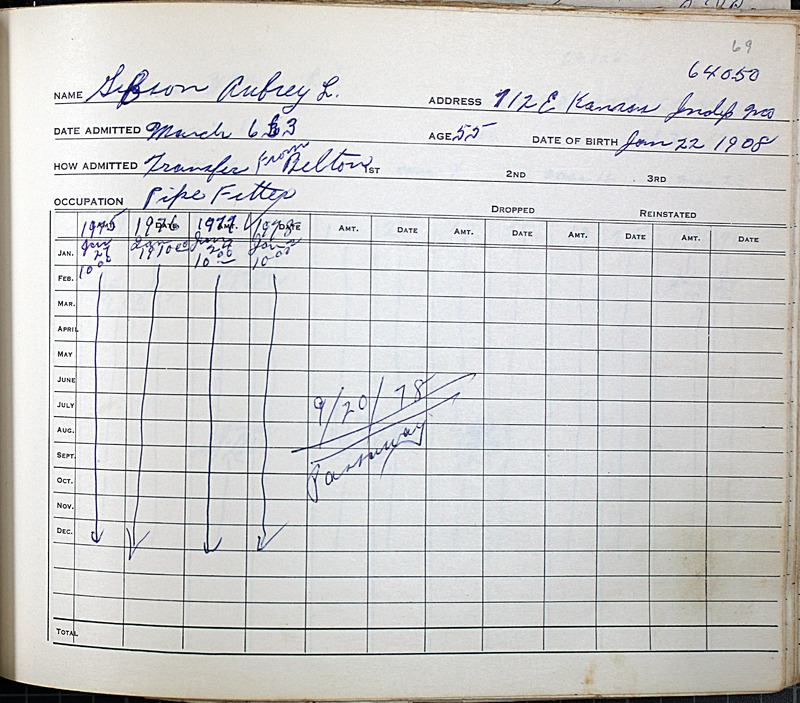 69
64050
NAME Gibson Aubrey L. ADDRESS 712 E Kansas Indep Mo
DATE ADMITTED March 6 63 AGE 55 DATE OF BIRTH Jan 22 1908
HOW ADMITTED Transfer From Belton 1ST 2ND 3RD
OCCUPATION Pipe Fitter DROPPED REINSTATED
1975 1976 1977 1978
DATE AMT. DATE AMT. DATE AMT. DATE AMT. DATE AMT. DATE
JAN. Jan 26 10 00
FEB.
MAR.
APRIL
MAY
JUNE
JULY 9/20/78
AUG.
SEPT. Passaway
OCT.
NOV.
DEC.
TOTAL